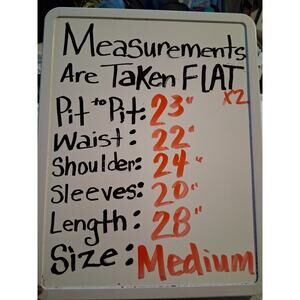 Measurements
Are Taken FLAT
x2
Pit to Pit: 23"
Waist: 22"
Shoulder: 24"
Sleeves: 20"
Length: 28"
Size: Medium